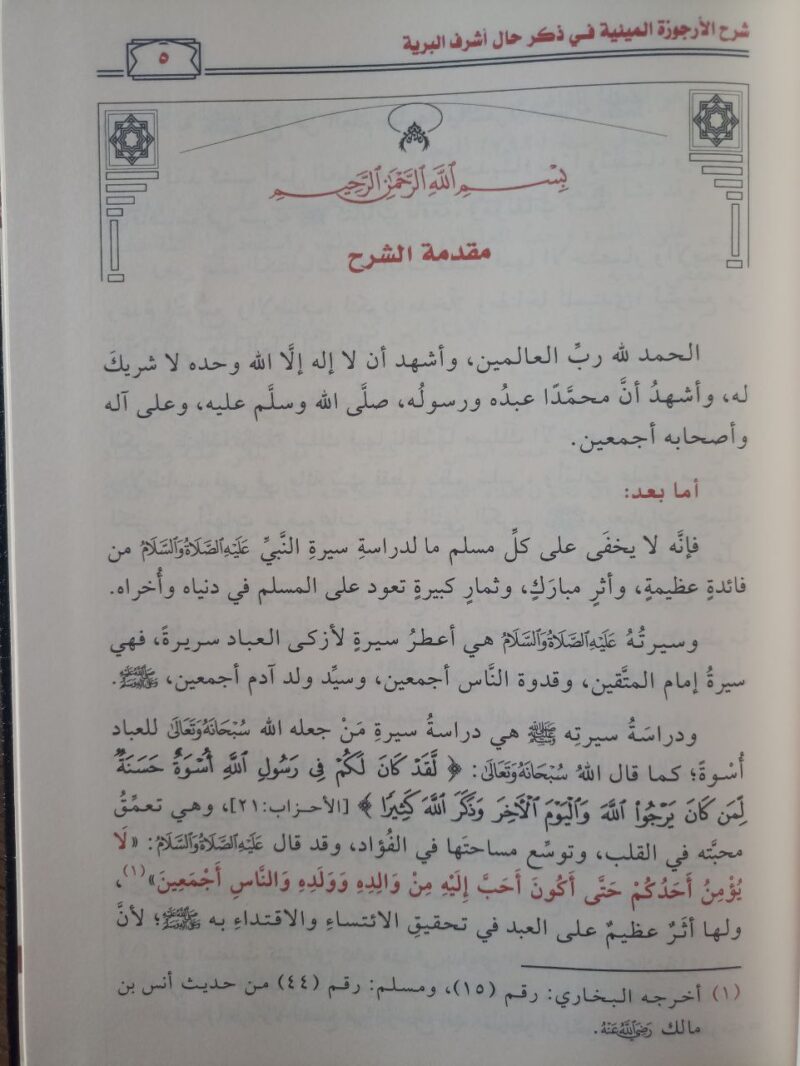 شرح الأرجوزة الميئية في ذكر حال أشرف البرية
٥
بِسْمِ اللَّهِ الرَّحْمَنِ الرَّحِيمِ
مقدمة الشرح
الحمد لله ربِّ العالمين، وأشهد أن لا إله إلَّا الله وحده لا شريكَ
له، وأشهدُ أنَّ محمَّدًا عبدُه ورسولُه، صلَّى الله وسلَّم عليه، وعلى آله
وأصحابه أجمعين.
أما بعد:
فإنَّه لا يخفَى على كلِّ مسلم ما لدراسةِ سيرةِ النَّبيِّ عَلَيْهِ الصَّلَاةُ وَالسَّلَامُ من
فائدةٍ عظيمةٍ، وأثرٍ مبارَكٍ، وثمارٍ كبيرةٍ تعود على المسلم في دنياه وأُخراه.
وسيرتُهُ عَلَيْهِ الصَّلَاةُ وَالسَّلَامُ هي أعطرُ سيرةٍ لأزكى العباد سريرةً، فهي
سيرةُ إمام المتَّقين، وقدوة النَّاس أجمعين، وسيِّد ولد آدم أجمعين، ﷺ.
ودراسَةُ سيرتِه ﷺ هي دراسةُ سيرةِ مَنْ جعله الله سُبْحَانَهُ وَتَعَالَى للعباد
أُسْوةً؛ كما قال اللهُ سُبْحَانَهُ وَتَعَالَى: ﴿ لَّقَدْ كَانَ لَكُمْ فِي رَسُولِ اللَّهِ أُسْوَةٌ حَسَنَةٌ
لِّمَن كَانَ يَرْجُوا اللَّهَ وَالْيَوْمَ الْآخِرَ وَذَكَرَ اللَّهَ كَثِيرًا ﴾ [الأحزاب:٢١]، وهي تعمِّقُ
محبَّته في القلب، وتوسِّع مساحتَها في الفُؤاد، وقد قال عَلَيْهِ الصَّلَاةُ وَالسَّلَامُ: «لَا
يُؤْمِنُ أَحَدُكُمْ حَتَّى أَكُونَ أَحَبَّ إِلَيْهِ مِنْ وَالِدِهِ وَوَلَدِهِ وَالنَّاسِ أَجْمَعِينَ»(١)،
ولها أثَرٌ عظيمٌ على العبد في تحقيقِ الائتساءِ والاقتداءِ به ﷺ؛ لأنَّ
(١) أخرجه البخاري: رقم (١٥)، ومسلم: رقم (٤٤) من حديث أنس بن
مالك رَضِيَ اللَّهُ عَنْهُ.